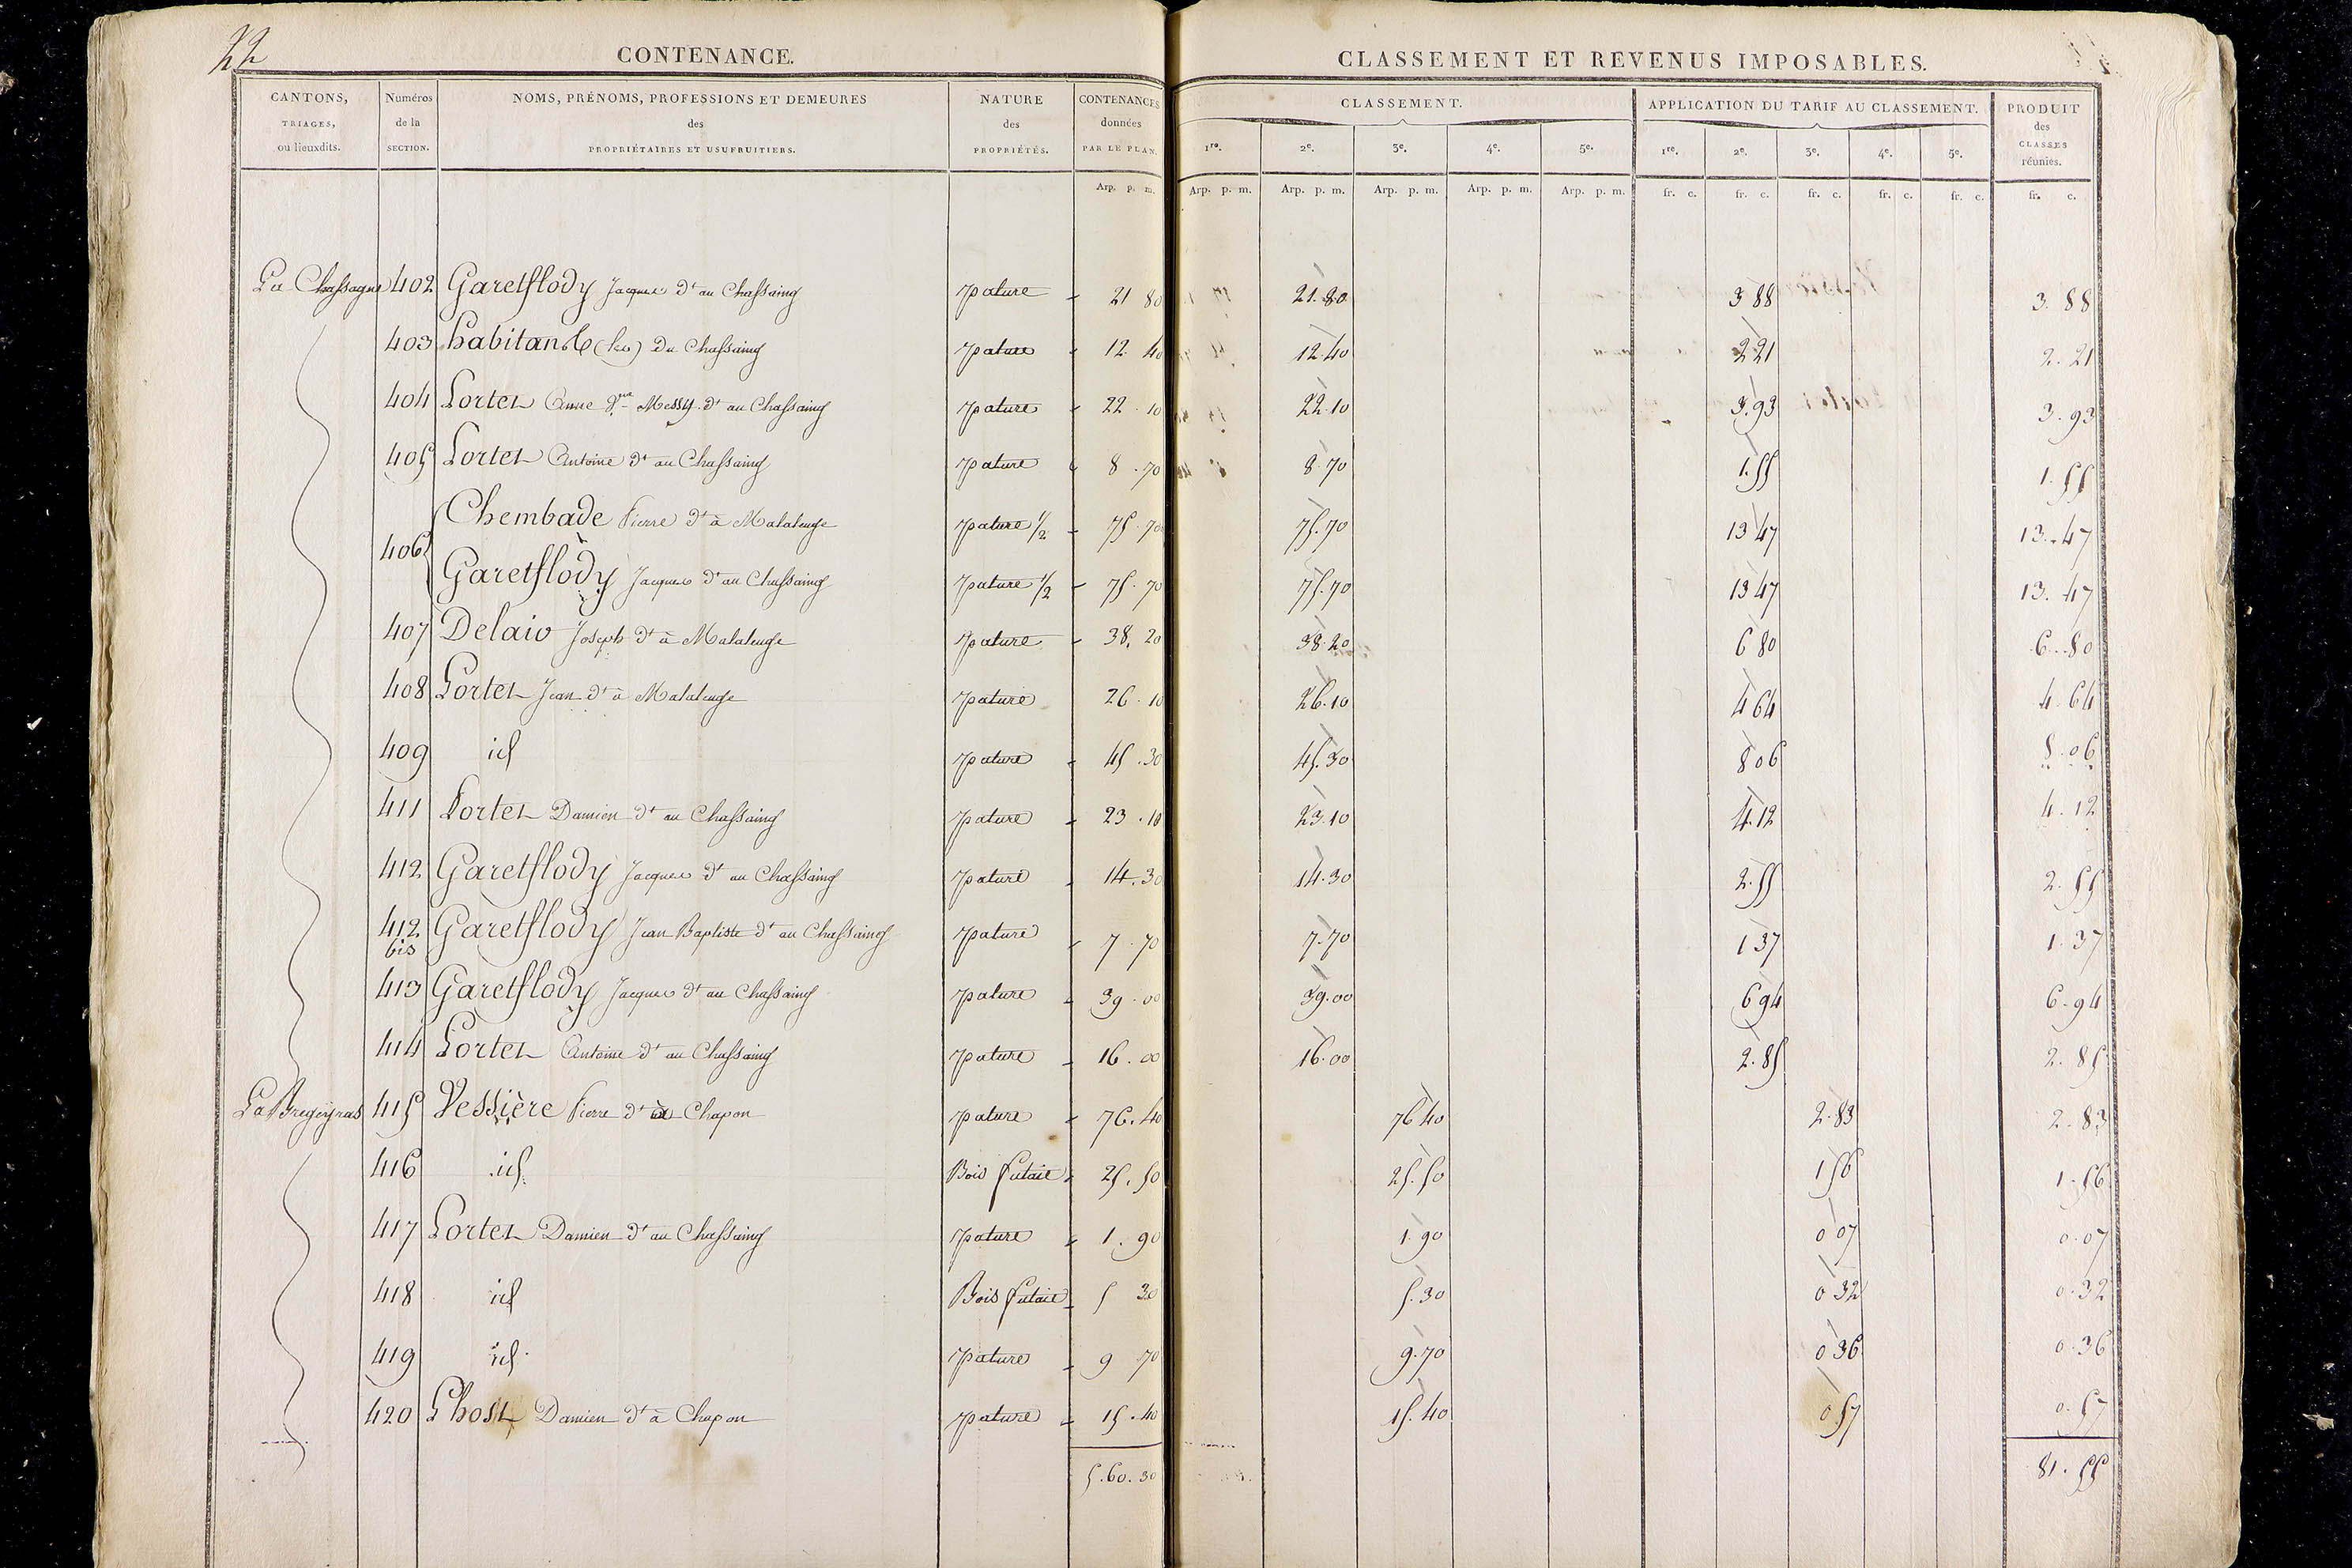 22
CONTENANCE.
CLASSEMENT ET REVENUS IMPOSABLES.
CANTONS, TRIAGES, ou lieuxdits.
Numéros de la SECTION.
NOMS, PRÉNOMS, PROFESSIONS ET DEMEURES des PROPRIÉTAIRES ET USUFRUITIERS.
NATURE des PROPRIÉTÉS.
CONTENANCES données PAR LE PLAN.
CLASSEMENT.
1re. 2e. 3e. 4e. 5e.
APPLICATION DU TARIF AU CLASSEMENT.
1re. 2e. 3e. 4e. 5e.
PRODUIT des CLASSES réunies.
Arp. p. m. Arp. p. m. Arp. p. m. Arp. p. m. Arp. p. m. Arp. p. m. fr. c. fr. c. fr. c. fr. c. fr. c. fr. c.
La Chassagne 402 Garetflody Jacques dt au Chassaing pature - 21 80 21.80 3 88 3.88
403 habitants (les) du Chassaing pature - 12.40 12.40 2 21 2.21
404 Portet Anne Messy dt au Chassaing pature - 22.10 22.10 3.93 3.93
405 Portet Antoine dt au Chassaing pature 8.70 8.70 1.55 1.55
406 Chembade Pierre dt à Malaleuge pature 1/2 - 75.70 75.70 13 47 13.47
Garetflody Jacques dt au Chassaing pature 1/2 - 75.70 75.70 13 47 13.47
407 Delaiv Joseph dt à Malaleuge pature - 38.20 38.20 6 80 6.80
408 Portet Jean dt à Malaleuge pature 26.10 26.10 4 64 4.64
409 id pature - 45.30 45.30 8 06 8.06
411 Portet Damien dt au Chassaing pature - 23.10 23.10 4.12 4.12
412 Garetflody Jacques dt au Chassaing pature - 14.30 14.30 2.55 2.55
412 bis Garetflody Jean Baptiste dt au Chassaing pature - 7.70 7.70 1 37 1.37
413 Garetflody Jacques dt au Chassaing pature - 39.00 39.00 6 94 6.94
414 Portet Antoine dt au Chassaing pature - 16.00 16.00 2.85 2.85
La Bregeyras 415 Vessière Pierre dt à Chapon pature - 76.40 76 40 2.83 2.83
416 id. Bois futaie - 25.50 25.50 1 56 1.56
417 Portet Damien dt au Chassaing pature - 1.90 1.90 0 07 0.07
418 id Bois futaie - 5 30 5.30 0 32 0.32
419 id. pature - 9 70 9.70 0 36 0.36
420 Phost Damien dt à Chapon pature - 15.40 15.40 0 57 0.57
5.60.30 81.55